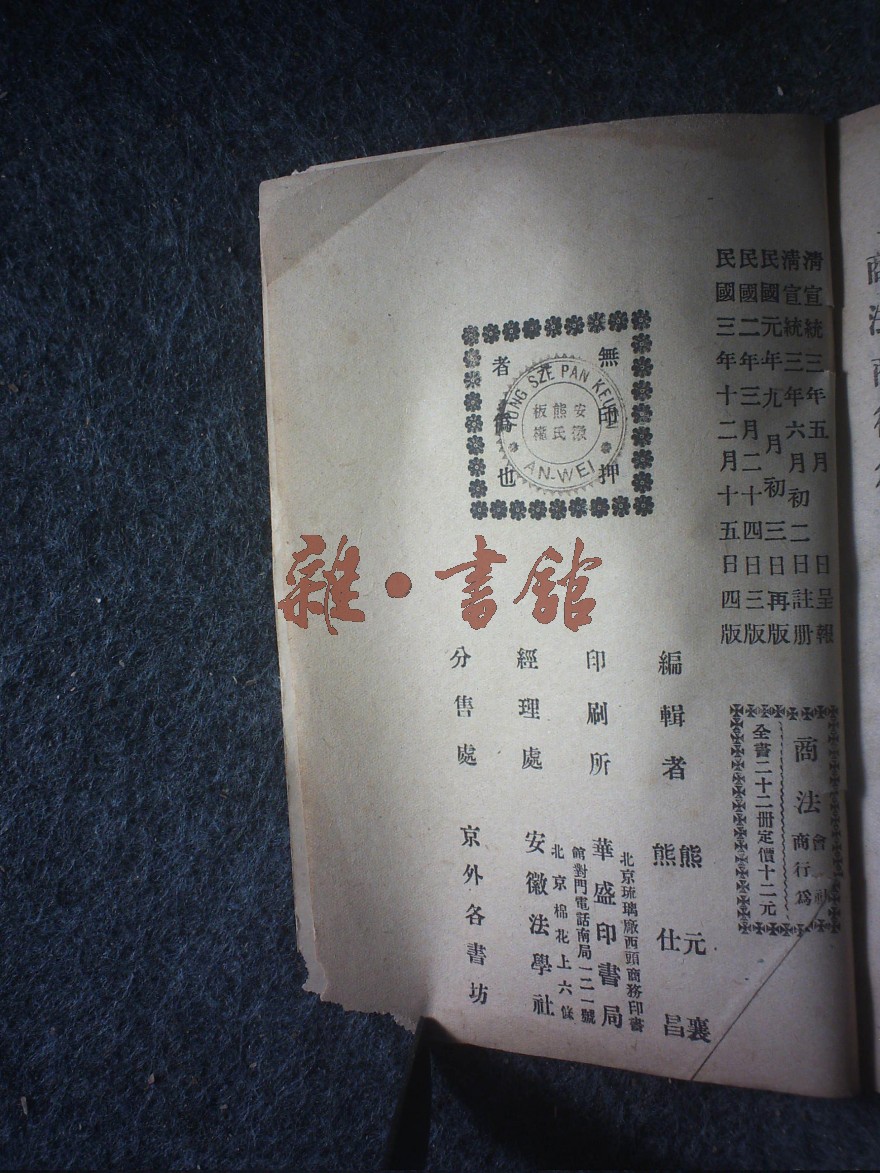 清宣統三年五月　日呈報
清宣統三年六月初二日註册
民國元年九月初三日再版
民國二年三月二十四日三版
民國三年十二月十五日四版
商法
會社
商行爲
全書二十二册定價十二元
無印押
者偽也
SZE PAN
安徽
熊氏
板權
AN-WEI
雜·書館
編輯者　熊元襄
熊仕昌
印刷所
北京琉璃廠西頭商務印書
華盛印書局
館對門電話南局一二一號
經理處
北京棉花上六條
安徽法學社
分售處　京外各書坊